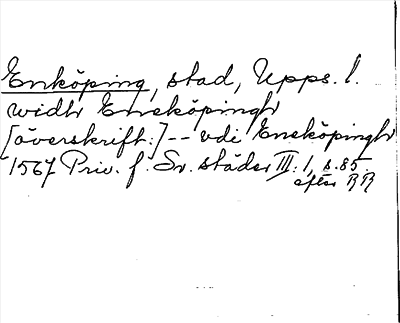 Enköping, stad, Upps. l.
widh Eneköpingh
[överskrift:] -- vdi Eneköpingh
1567 Priv. f. Sv. städer III: 1, s. 85
efter RR